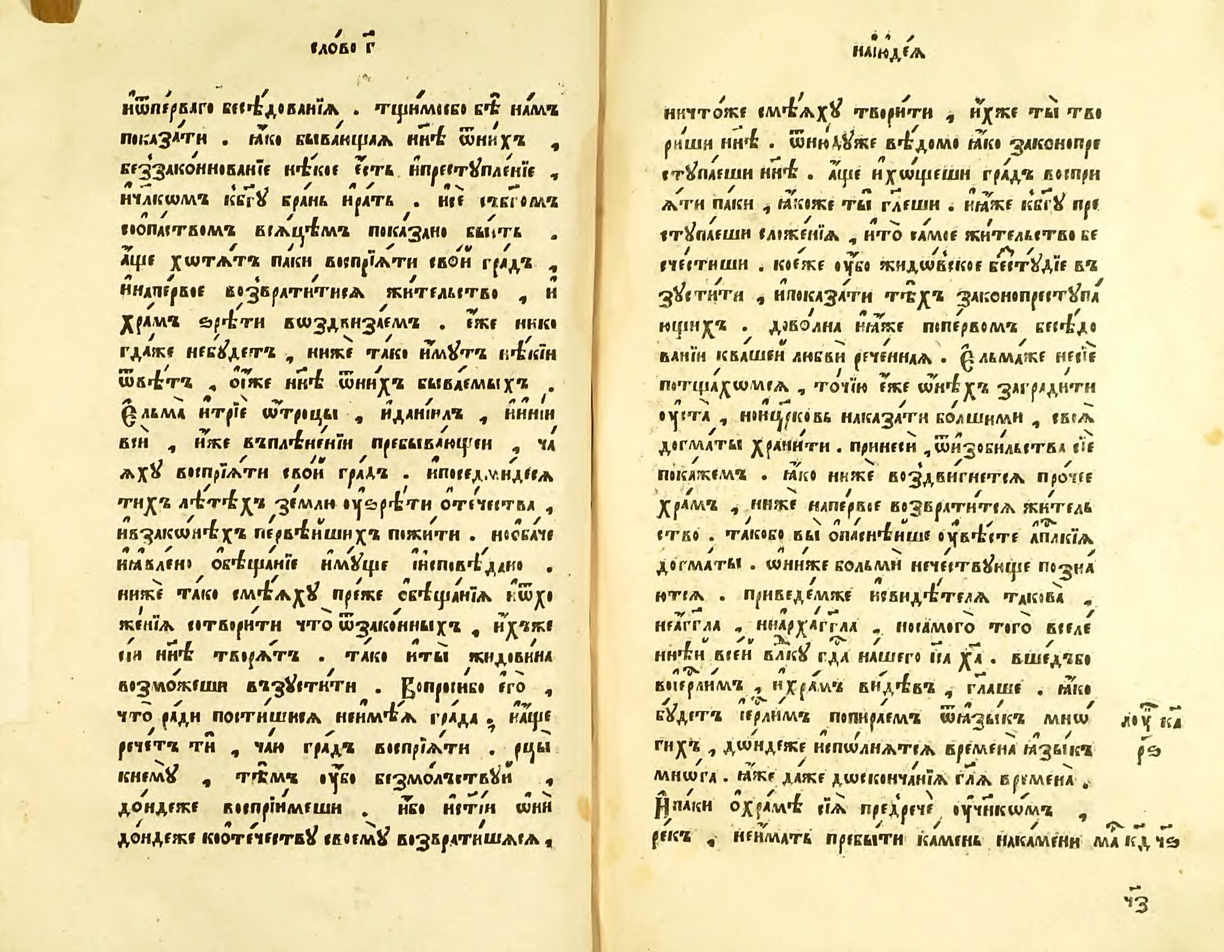 сло́во г҃
и҆ѿпе́рваго бесѣ́дованїѧ . тщи́мосѧбо бѣ̀ на́мъ
показа́ти . ꙗ҆́ко быва́ющаѧ нн҃ѣ ѿни́хъ ,
беззако́ннованїе нѣ́кое є҆́сть и҆преступле́нїе ,
и҆чл҃кѡмъ кбг҃ꙋ бра́нь и҆ра́ть . и҆сѐ събг҃омъ
соопа́ствомъ всѧ́цѣмъ пока́зано бы́сть .
а҆́ще хѡтѧ́тъ па́ки воспрїѧ́ти сво́й гра́дъ ,
и҆напе́рвое возврати́тисѧ жи́тельство , и҆
хра́мъ ѕрѣ́ти вѡздвиза́ем . є҆́же нико
гда́же небꙋ́детъ , нижѐ та́ко и҆́мꙋтъ нѣ́кїи
ѿвѣ́тъ , ѻ҆и҆́же нн҃ѣ ѿни́хъ быва́емыхъ .
Є҆льма̀ и҆трїѐ ѻ҆́троцы , и҆данїи́лъ , и҆и҆ні́и
всѝ , и҆̀же въплѣне́нїи пребыва́ющеи , ча́
ѧхꙋ воспрїѧ́ти сво́й гра́дъ . и҆поседмидесѧ
ти́хъ лѣ́тѣхъ зе́млю оу҆ѕрѣ́ти ѻ҆те́чества ,
и҆взако́нѣхъ перве́йшихъ пожи́ти . но҆ѻба́че
и҆ꙗ҆вле́но ѻ҆бѣща́нїе и҆мꙋ́ще і҆исповѣ́дано .
нижѐ та́ко смѣ́ѧхꙋ пре́же ѻ҆бѣща́нїѧ и҆ѿхо
же́нїѧ сотвори́ти что̀ ѿзако́нныхъ , и҆́хъже
сїѝ нн҃ѣ творѧ́тъ . та́ко и҆ты̀ жи́довина
возмо́жеши възꙋсти́ти . Вопроси́бо є҆го̀ ,
что̀ ра́ди пости́шисѧ неи҆мѣ́ѧ гра́да . и҆а҆́ще
рече́тъ тѝ , ча́ю гра́дъ воспрїѧ́ти . рцы̀
кнемꙋ̀ , тѣ́мъ оу҆́бо безмо́лствꙋй ,
до́ндеже воспрїи́меши . и҆́бо и҆сті́и ѻ҆нѝ
до́ндеже коѻте́чествꙋ своемꙋ̀ возврати́шасѧ ,
наі҆ю҆де́ѧ
ничто́же смѣ́ѧхꙋ твори́ти , и҆́хже ты̀ тво
ри́ши нн҃ѣ . ѿню́дꙋже вѣ́домо ꙗ҆́ко законопре
стꙋпа́еши нн҃ѣ . а҆́ще и҆хѡ́щеши гра́дъ воспри
ѧ́ти па́ки , ꙗ҆́коже ты̀ гл҃еши . и҆ꙗ҆́же кбг҃ꙋ пре
стꙋпа́еши сложе́нїѧ , и҆то̀ са́мое жи́тельство бе
счести́ши . кое́же оу҆́бо жидѡ́вское бестꙋ́дїе въ
зꙋсти́ти , и҆показа́ти тѣ́хъ законопрестꙋпа́
ющихъ . дово́лна и҆ꙗ҆́же попе́рвомъ бесѣ́до
ванїи ква́шей любвѝ рече́ннаѧ . Є҆льма́же несїѐ
потща́хѡмсѧ , то́чїю є҆́же ѻ҆нѣ́хъ загради́ти
оу҆ста̀ , нои҆цр҃ковь наказа́ти бо́лшими , своѧ̀
до́гматы храни́ти . принесѝ , ѿи҆зоби́льства сїѐ
пока́жемъ . ꙗ҆́ко нижѐ воздви́гнетсѧ про́чее
хра́мъ , нижѐ напе́рвое возврати́тсѧ жи́тель
ство . та́кобо вы̀ ѻ҆па́снѣйше оу҆вѣ́сте а҆пл҇кїѧ
до́гматы . ѻ҆ни́же бо́льми нече́ствꙋюще позна́
ютсѧ . приведе́мже и҆свидѣ́телѧ такова̀ ,
неа҆́гг҃ла , ниа҆рха́гг҃ла , носамого̀ того̀ вселе́
ннѣй всей влⷣкꙋ гдⷭ҇а на́шего і҆са ха . вше́дъбо
воі҆ерл҇имъ , и҆хра́мъ ви́дѣвъ , гл҃аше . ꙗ҆́ко
бꙋ́детъ і҆ерл҇имъ попира́емъ ѿꙗ҆зы́къ мнѡ́
гихъ , до́ндеже и҆спо́лнѧтсѧ времена̀ ꙗ҆зы́къ
мнѡ́га . ꙗ҆́же да́же доскон­ча́нїѧ гл҃ѧ времена̀ .
И҆па́ки ѻ҆хра́мѣ сїѧ̀ предречѐ оу҆чн҃кѡмъ ,
ре́къ , неи҆мать пребы́ти ка́мень нака́мени
лоу҆к за
рѕ
маⷴ к҃д чѕ
чз